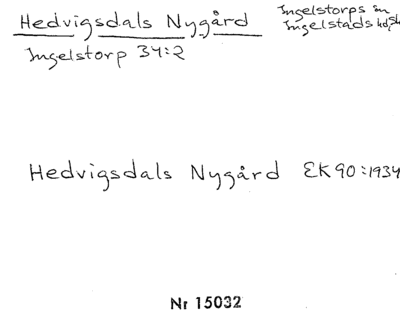 Hedvigsdals Nygård
Ingelstorps sn
Ingelstads hd, Sk
Ingelstorp 34:2
Hedvigsdals Nygård EK 90:1934
Nr 15032